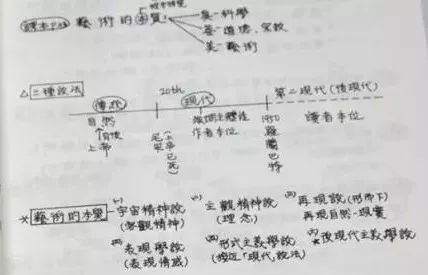 藝術的本質
真-科學
善-道德、宗教
美-藝術
△三種說法
傳統 20th 現代 第二現代(後現代)
自然
↑背後
上帝
尼采
(上帝已死)
作者本位
1950
羅蘭巴特
讀者本位
※藝術的本質
(一)宇宙精神說
(客觀精神)
(二)主觀精神說
(理念)
(三)再現說(形而下)
再現自然、現實
(四)表現學說
(表現情感)
(五)形式主義學說
(接近「現代」說法)
(六)*後現代主義學說